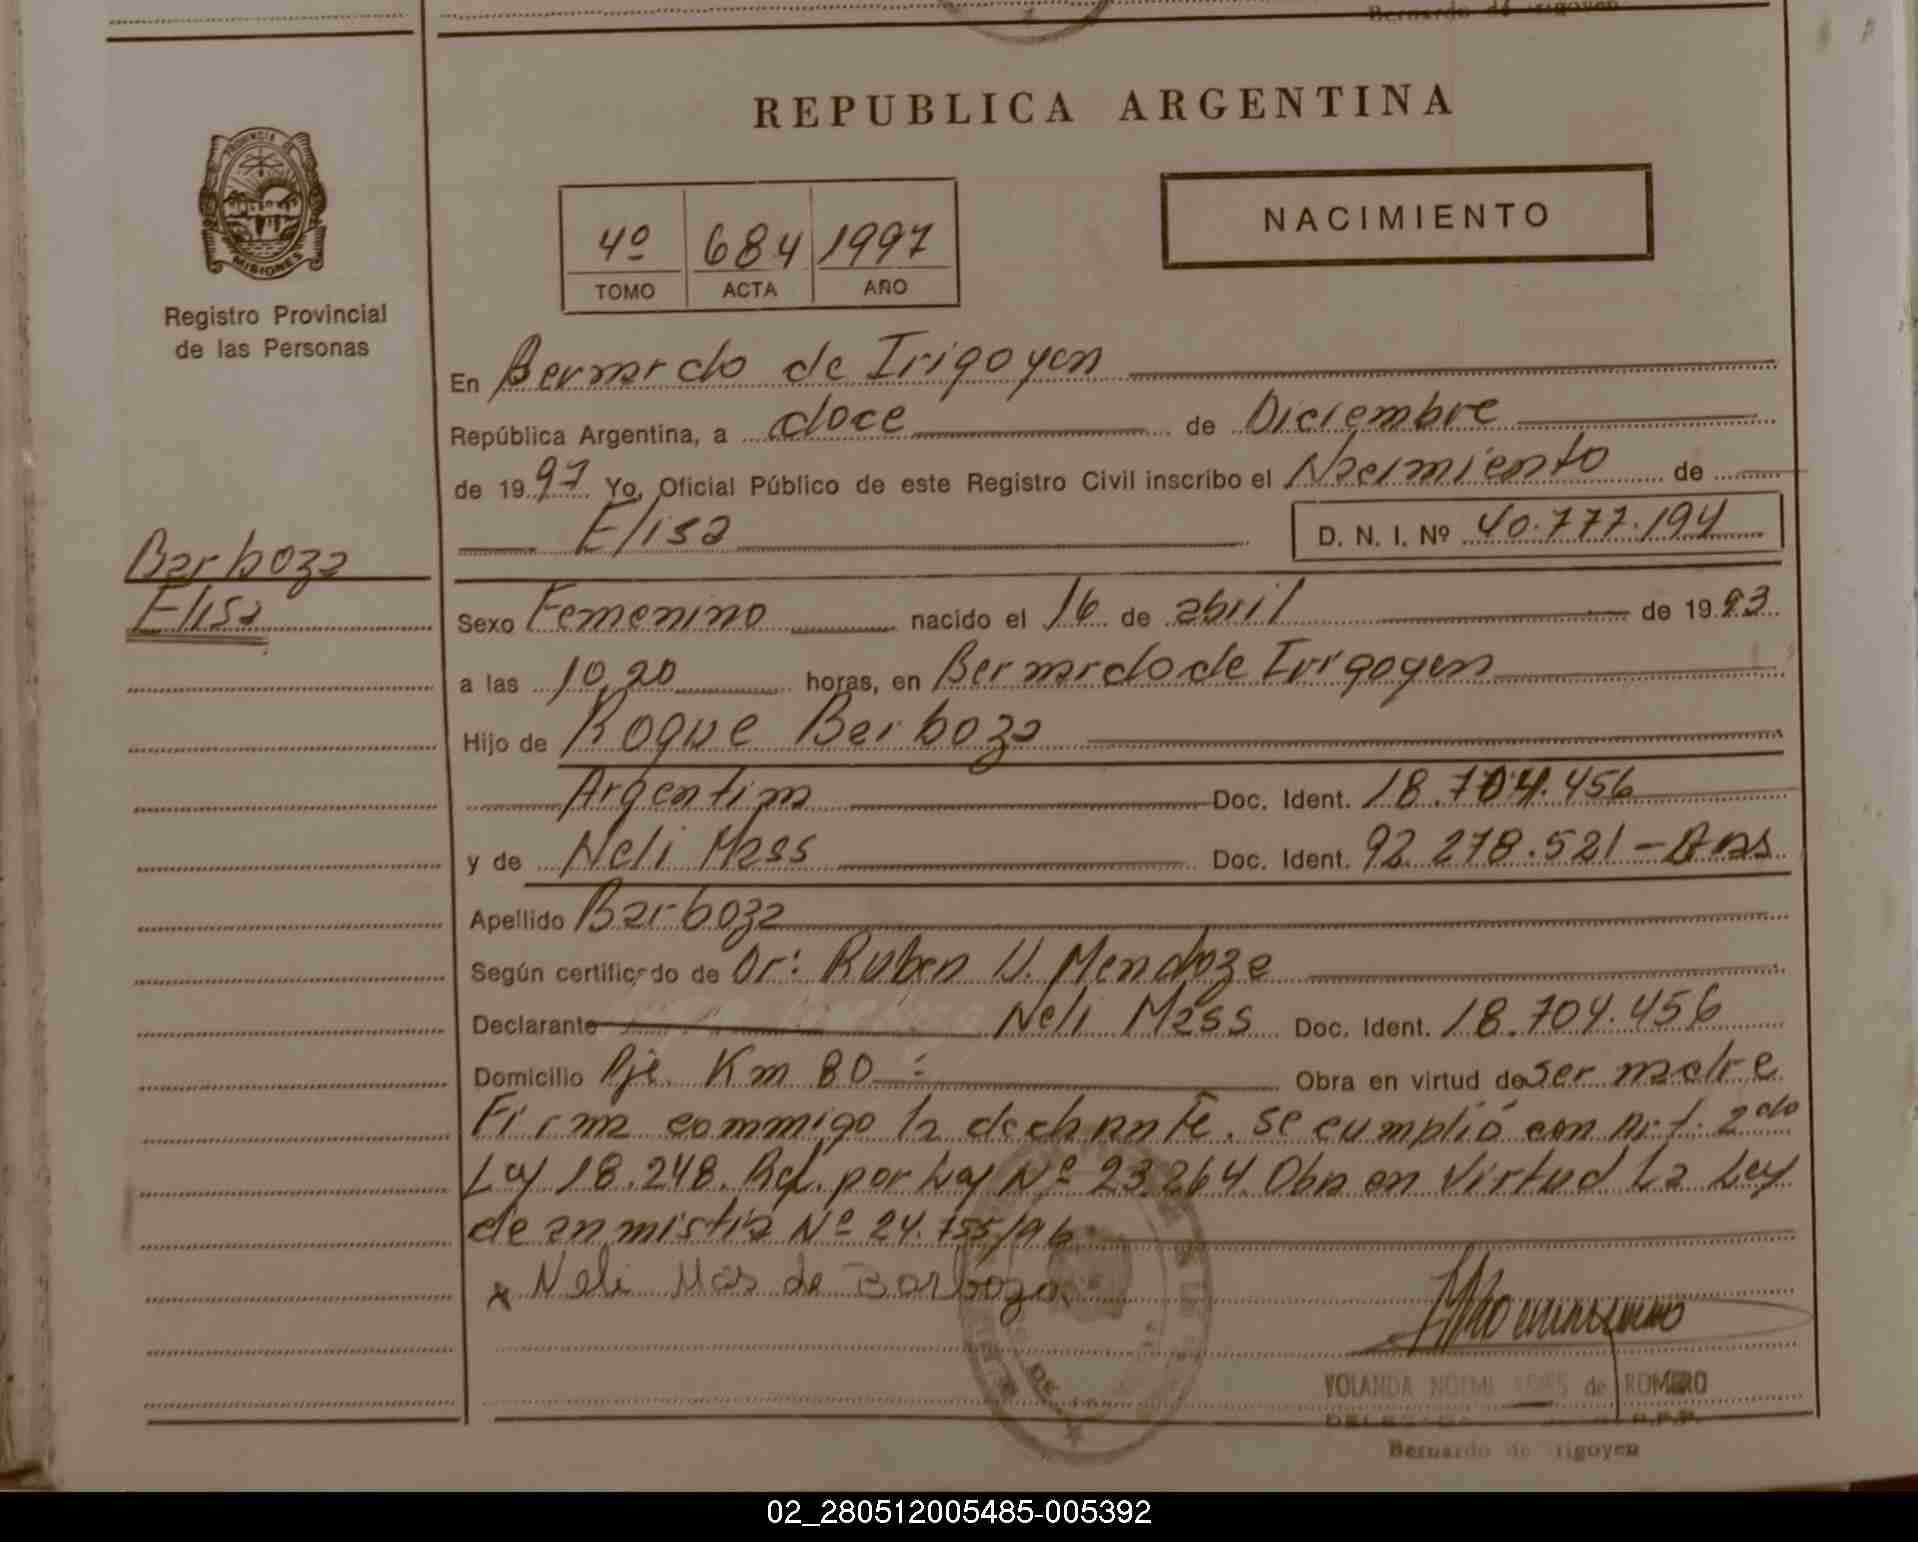 REPUBLICA ARGENTINA
PROVINCIA DE MISIONES
Registro Provincial
de las Personas
NACIMIENTO
4º 684 1997
TOMO ACTA AÑO
En Bernardo de Irigoyen
República Argentina, a doce de Diciembre
de 1997 Yo, Oficial Público de este Registro Civil inscribo el Nacimiento de
Elisa D. N. I. Nº 40.777.194
Barboza
Elisa
Sexo Femenino nacido el 16 de abril de 1993
a las 10,20 horas, en Bernardo de Irigoyen
Hijo de Roque Barboza
Argentina Doc. Ident. 18.704.456
y de Neli Mass Doc. Ident. 92.278.521 -
Apellido Barboza
Según certificado de Dr: Ruben U. Mendoza
Declarante Neli Mass Doc. Ident. 18.704.456
Domicilio Pje. Km 80 : Obra en virtud de ser madre
Firma conmigo la declarante. Se cumplió con Art. 2do
Ley 18.248. Ref. por Ley Nº 23.264. Obra en Virtud La Ley
de anmistia Nº 24.755/96
x Neli Mas de Barboza
YOLANDA NOEMI de ROMERO
R.P.P.
Bernardo de Irigoyen
02_280512005485-005392